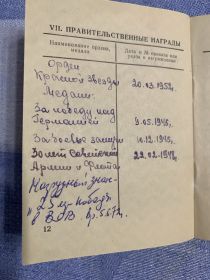 VII. ПРАВИТЕЛЬСТВЕННЫЕ НАГРАДЫ
Наименование ордена, медали
Дата и № приказа или указа о награждении
Орден
Красной Звезды 20.03.1952г.
Медали:
За победу над
Германией 9.05.1945г.
За боевые заслуги 10.12.1945г.
30 лет Советской 22.02.1948г.
Армии и Флота
Нагрудный знак
"25 лет победы
в ВОВ"
12